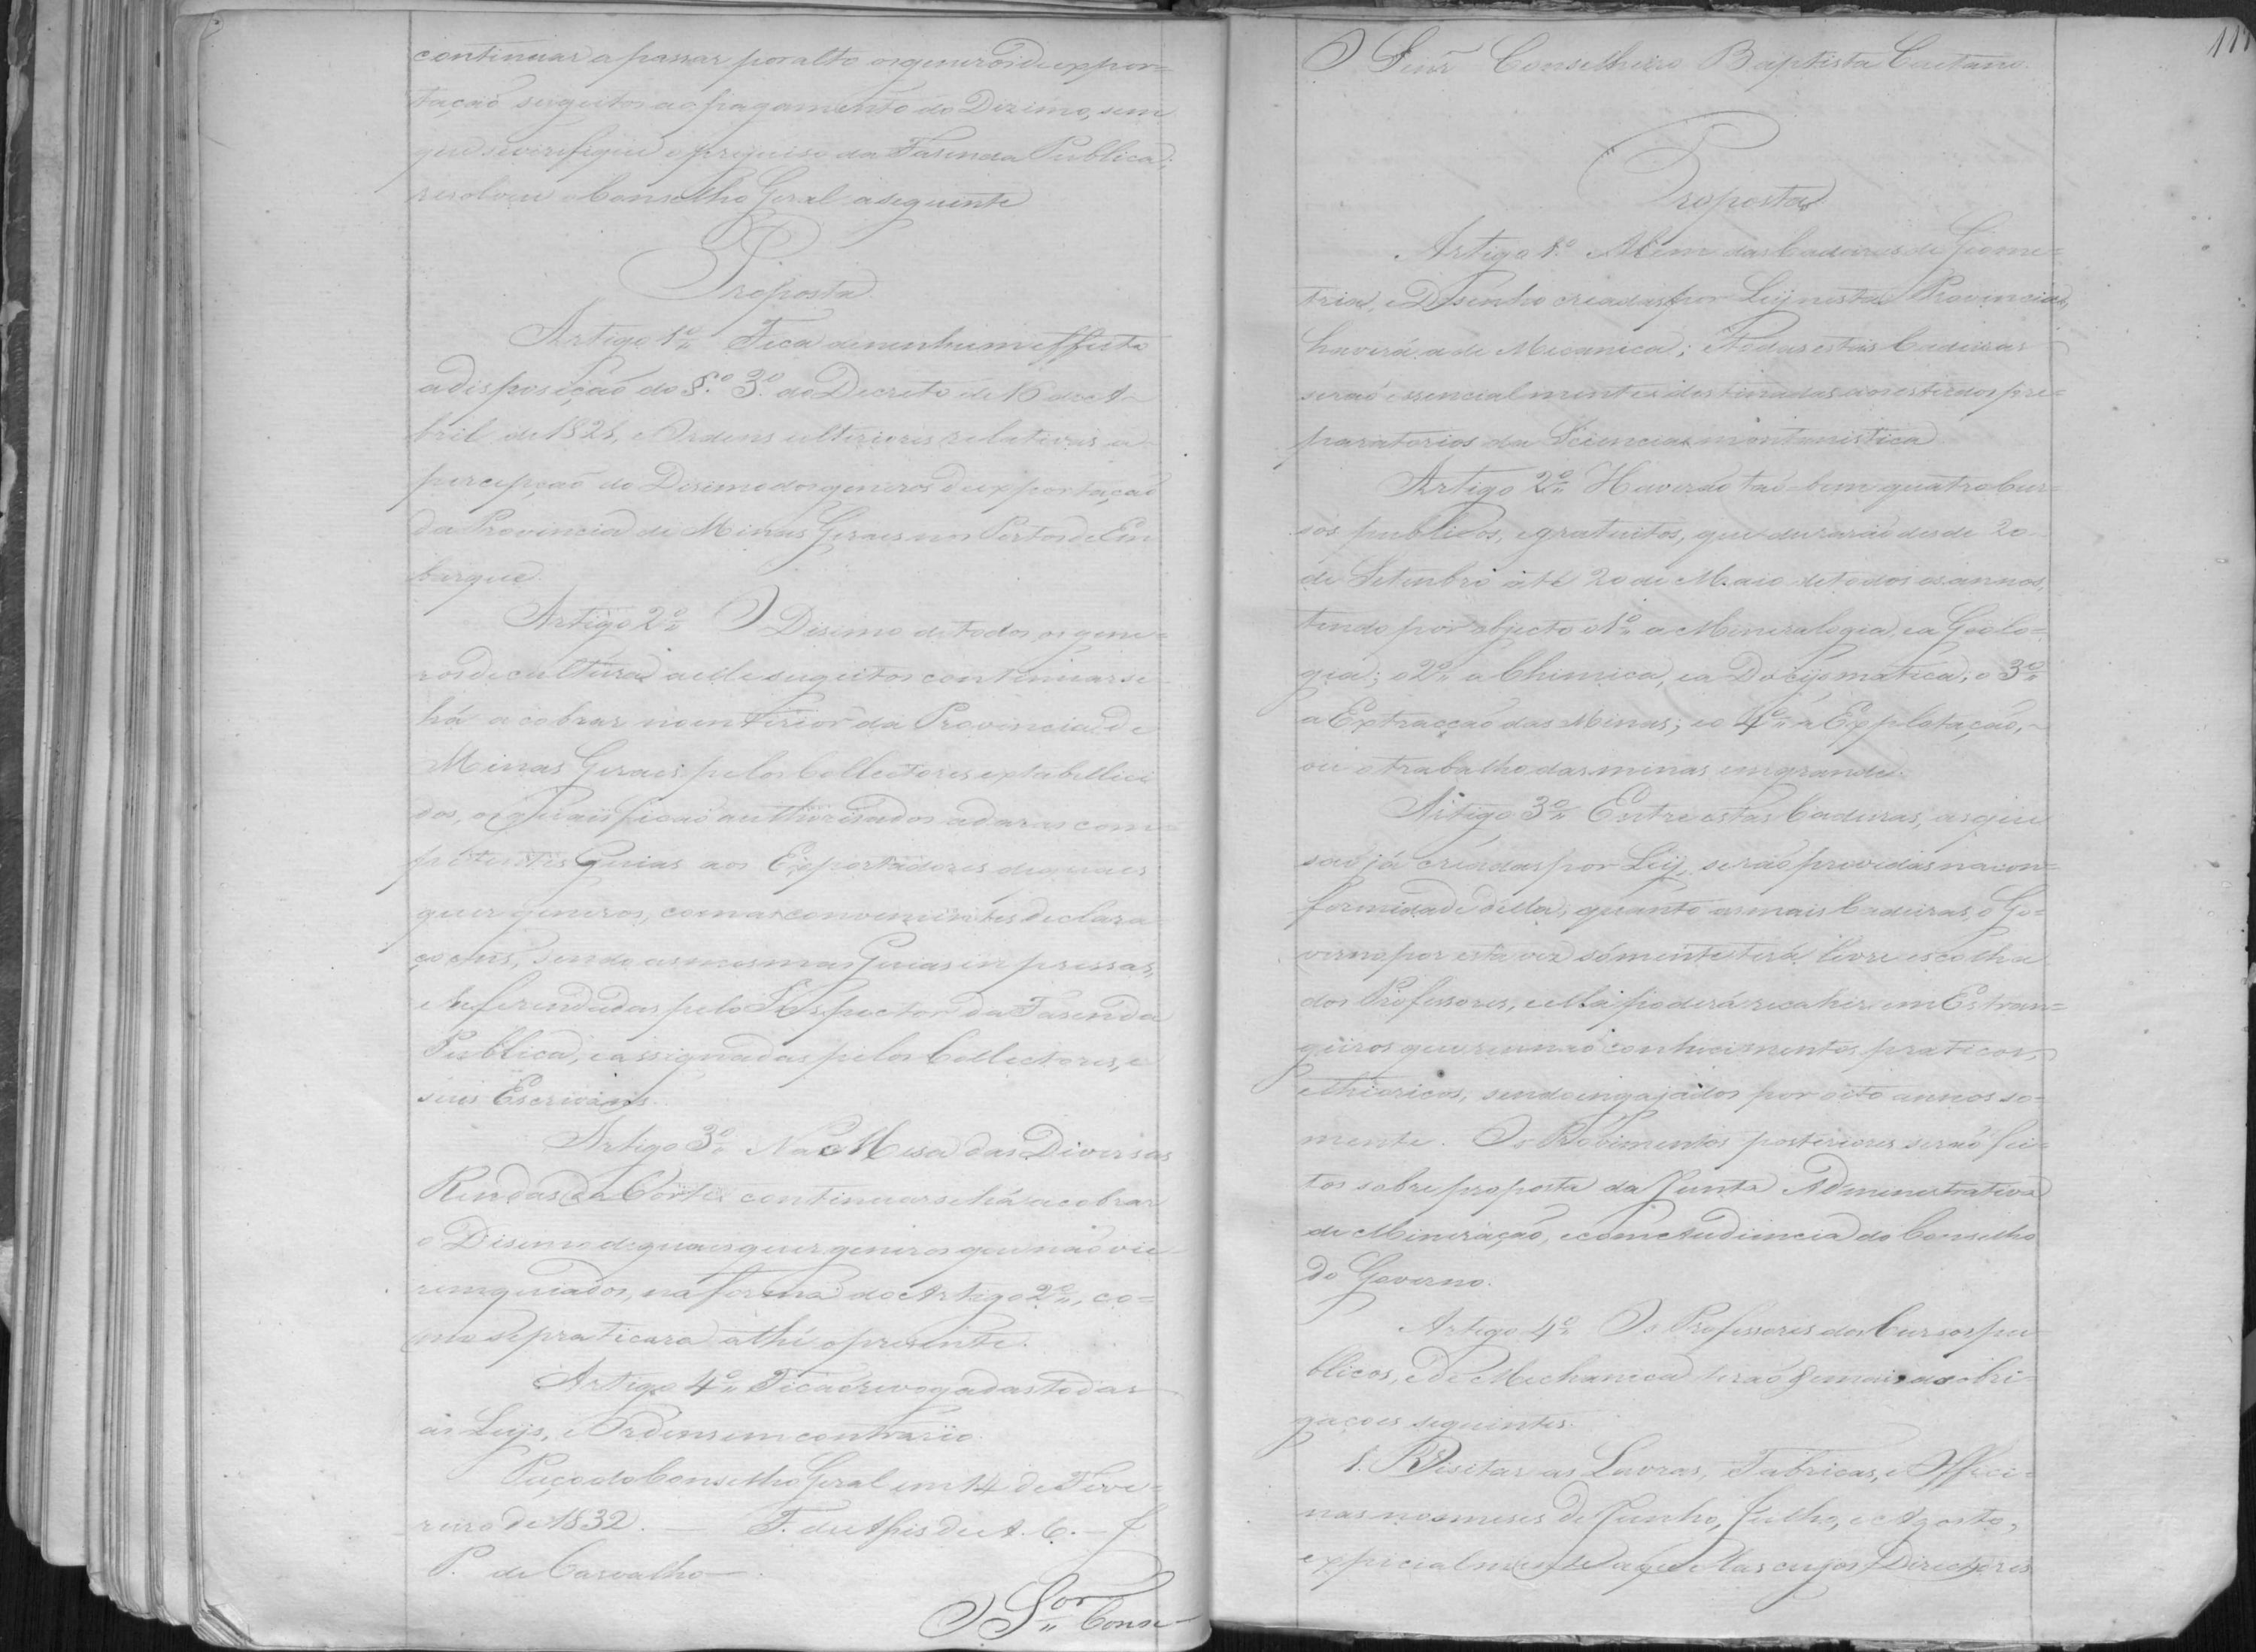 continuar a passar por alto os generos de expor=
tação sugeitos ao pagamento do Dizimo, sem
que se verifique o prejuiso da Fasenda Publica;
resolveu o Conselho Geral a seguinte
Proposta
Artigo 1º Fica de nenhum effeito
a disposição do §.º 3.º do Decreto de 16 de A-
bril de 1828, e Ordens ulteriores relativas a
percepção do Disimo dos generos de exportação
da Provincia de Minas Geraes nos Portos de Em
barque.
Artigo 2º O Disimo de todos os gene=
ros de cultura a elle sugeitos continuar se
há a cobrar no interior da Provincia de
Minas Geraes pelos Collectores extabelleci
dos, os quais ficaõ authorisados a dar as com=
petentes Guias aos Exportadores de quaes
quer generos, com as convenientes declara
çoens, sendo as mesmas Guias impressas,
e Referendadas pelo Inspector da Fasenda
Publica, e assignadas pelos Collectores, e
seus Escrivães.
Artigo 3º Na Mesa das Diversas
Rendas da Corte continuar se há a cobrar
o Disimo de quaes quer generos que não vie
rem guiados, na forma do Artigo 2º, co=
mo se praticara athé o presente.
Artigo 4º Ficaõ revogadas todas
as Leys, e Ordens em contrario.
Paço do Conselho Geral em 14 de Feve=
reiro de 1832. — F. de Assis de A. C. — J
P. de Carvalho —.
O Sor Conse
111
O Senr Conselheiro Baptista Caetano.
Proposta
Artigo 1º Alem das Cadeiras de Giome=
tria, e Desenho creadas por Ley nesta Provincia,
haverá a de Mecanica; Todas estas Cadeiras
seraõ essencialmente destinadas aos estudos pre=
paratorios da Sciencia montanistica
Artigo 2º Haverão taõ-bem quatro Cur=
sos publicos, e gratuitos, que durarão desde 20
de Setembro até 20 de Maio de todos os annos,
tendo por objecto o 1º a Mineralogia, e a Geolo=
gia; o 2º a Chimica, e a Docijmatica; o 3º
a Extracção das Minas; e o 4º a Explotação,
ou o trabalho das minas em grande.
Artigo 3º Entre estas Cadeiras, as que
saõ já creadas por Ley, serão providas na con=
formidade della; quanto as mais Cadeiras, o Go=
verno por esta vez sómente terá livre escolha
dos Professores, e ella poderá recahir em Estran=
geiros que reunaõ conhecimentos praticos,
e thioricos, sendo ingajados por oito annos so=
mente. Os Provimentos posteriores seraõ fei=
tos sobre proposta da Junta Administrativa
de Mineração, e com Audiencia do Conselho
do Governo.
Artigo 4º Os Professores dos Cursos pu
blicos, e de Mechanica teraõ de mais as obri=
gaçoes seguintes.
1. Visitar as Lavras, Fabricas, e Offici=
nas nos meses de Junho, Julho, e Agosto,
expicialmente aquellas cujos Directores